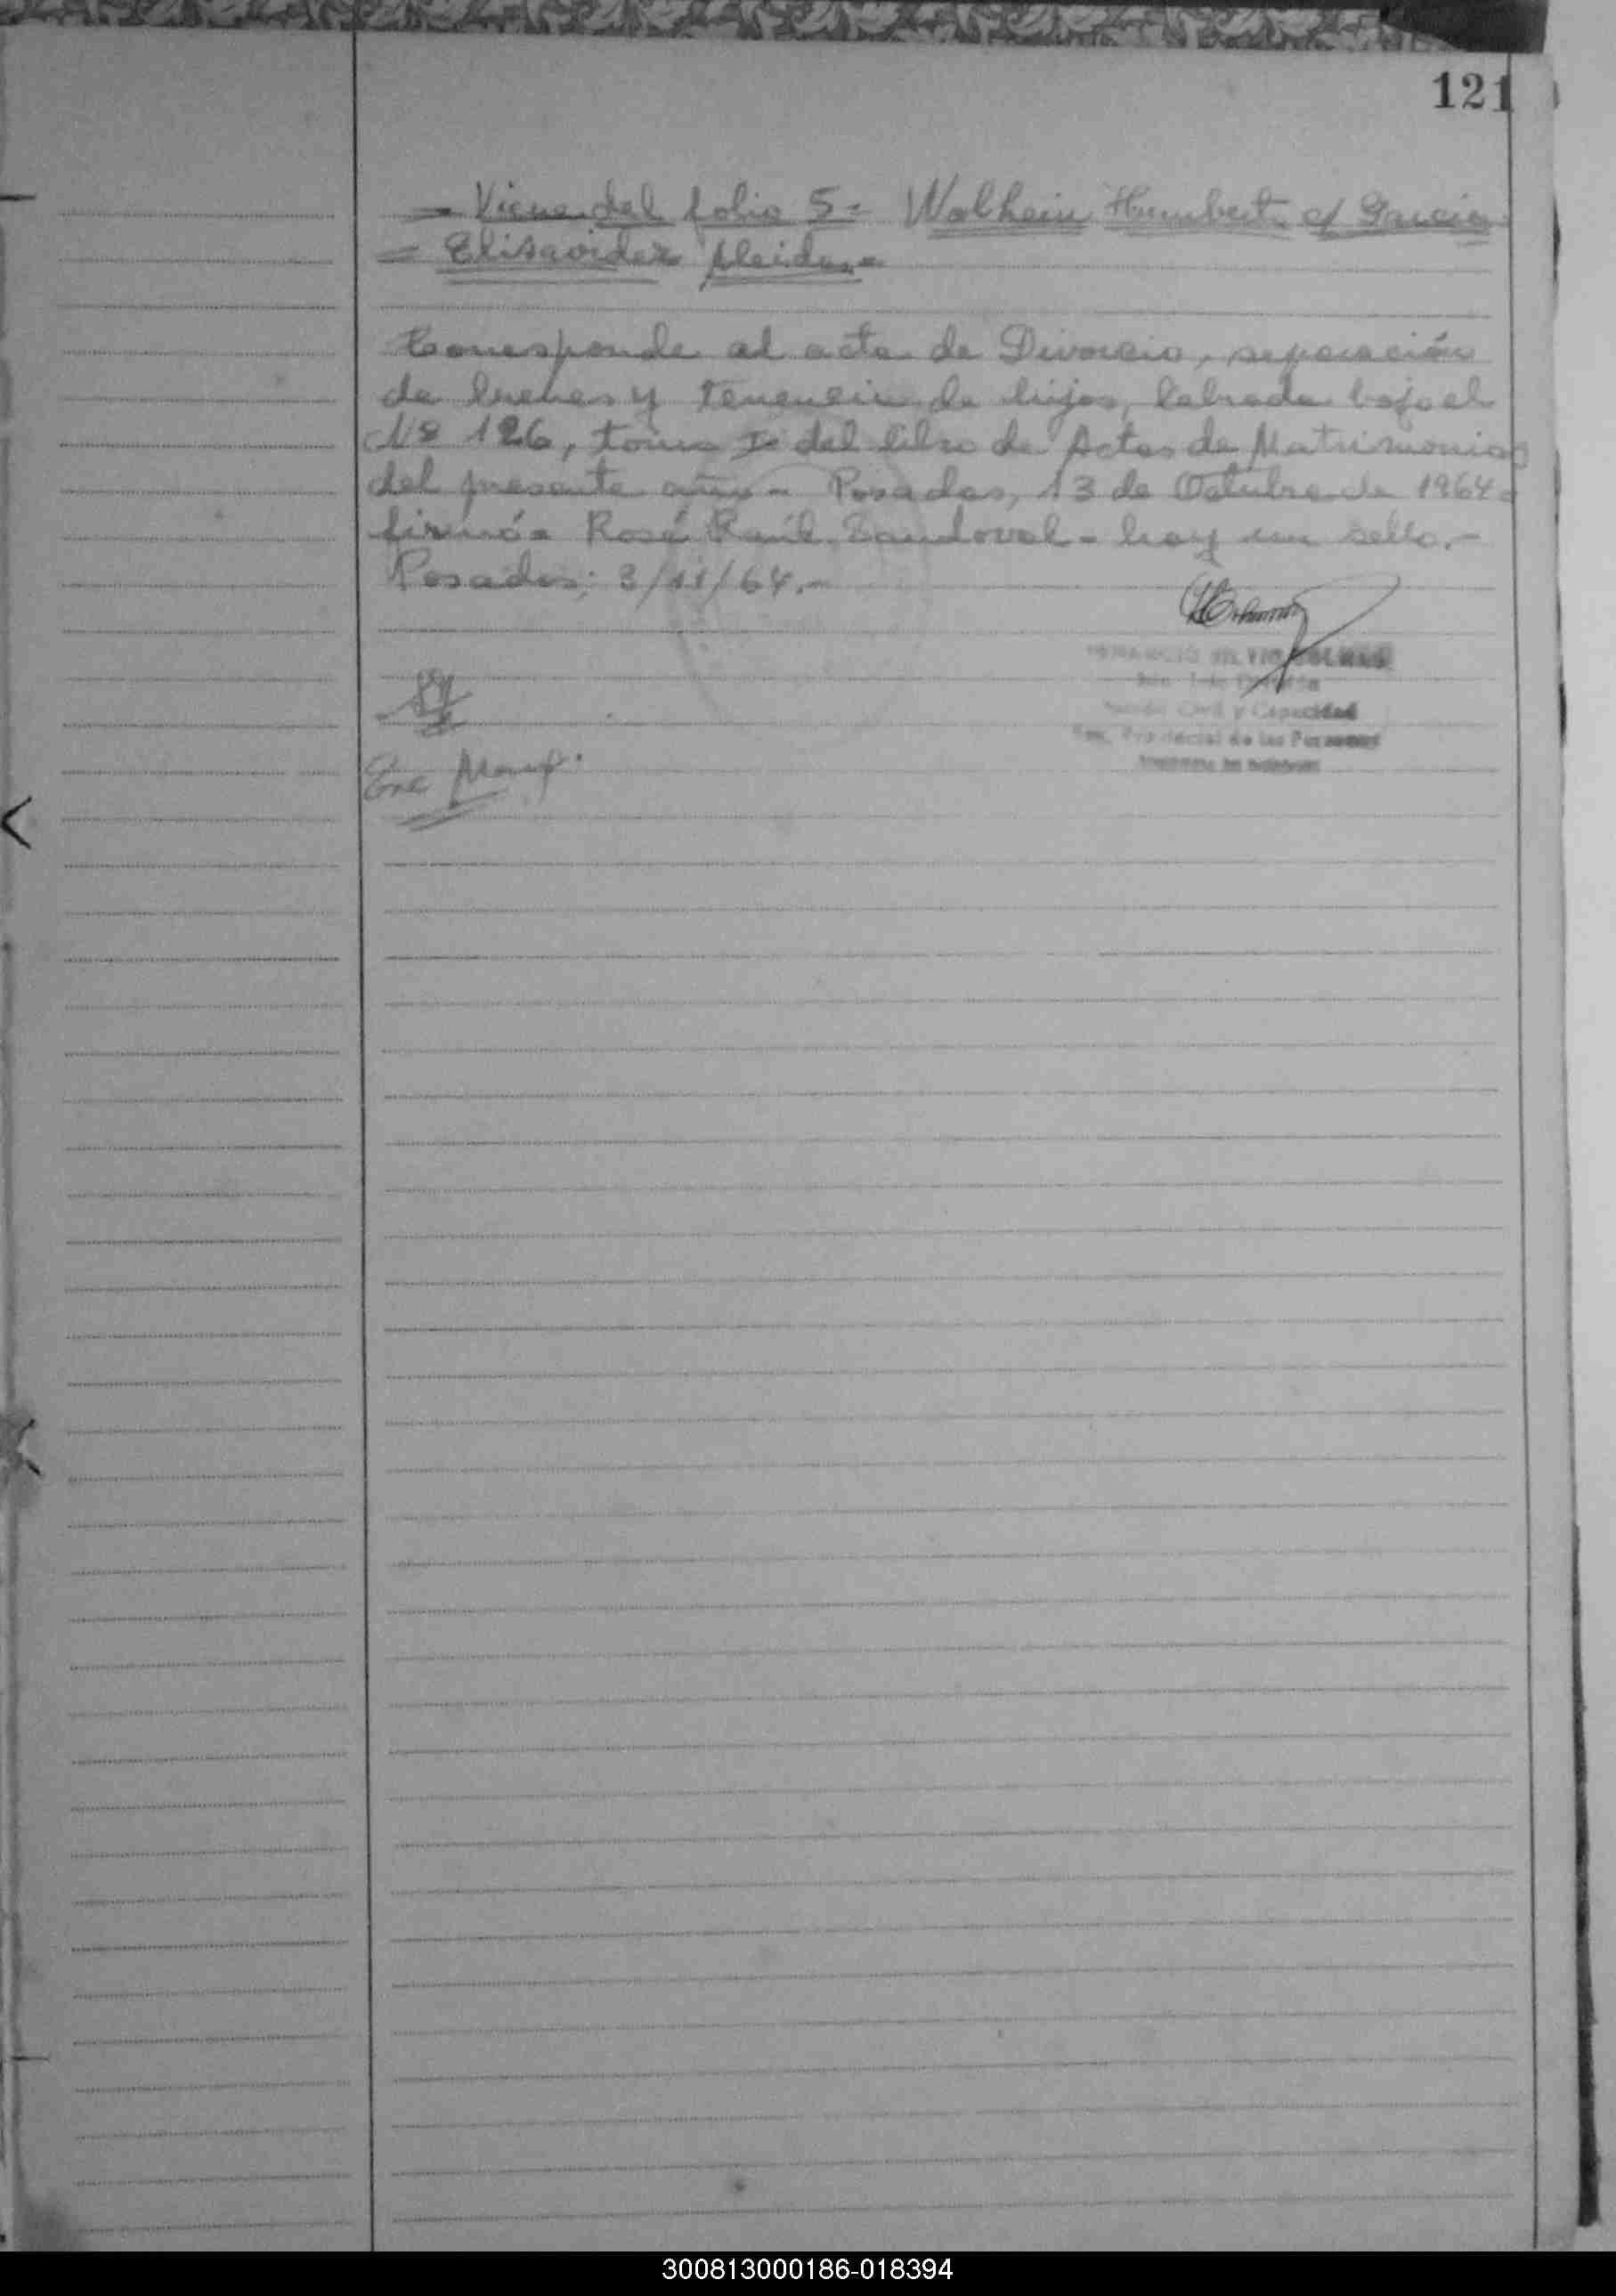 121
= Viene del folio 5 = Walhein Humberto c/ Garcia
= Elisavider Aleida.=
Corresponde al acta de Divorcio, separación
de bienes y tenencia de hijos, labrada bajo el
Nº 126, tomo Iº del libro de Actas de Matrimonios
del presente año - Posadas, 13 de Octubre de 1964 =
firmó = José Raúl Sandoval - hay un sello.-
Posadas; 3/11/64.-
Civil y Capacidad
Provincial de las Personas
300813000186-018394